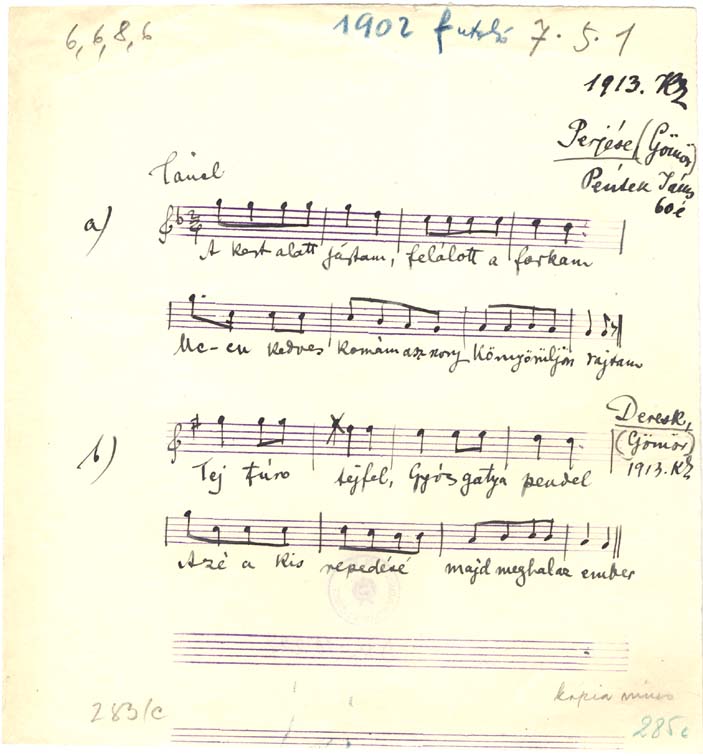 6, 6, 8, 6
1902 futoló 7. 5. 1
1913. KZ
Perjése (Gömör)
Péntek János
60 é
Táncl
a)
2/4
A kert alatt jártam, felálott a farkam
Me-en kedves komámasszony Könyörüljön rajtam
b)
Deresk,
(Gömör)
1913. KZ
Tej túro téjfel, Gyócs gatya pendel
Azé a kis repedésé majd meghal az ember
283/c
kopia nincs
285c